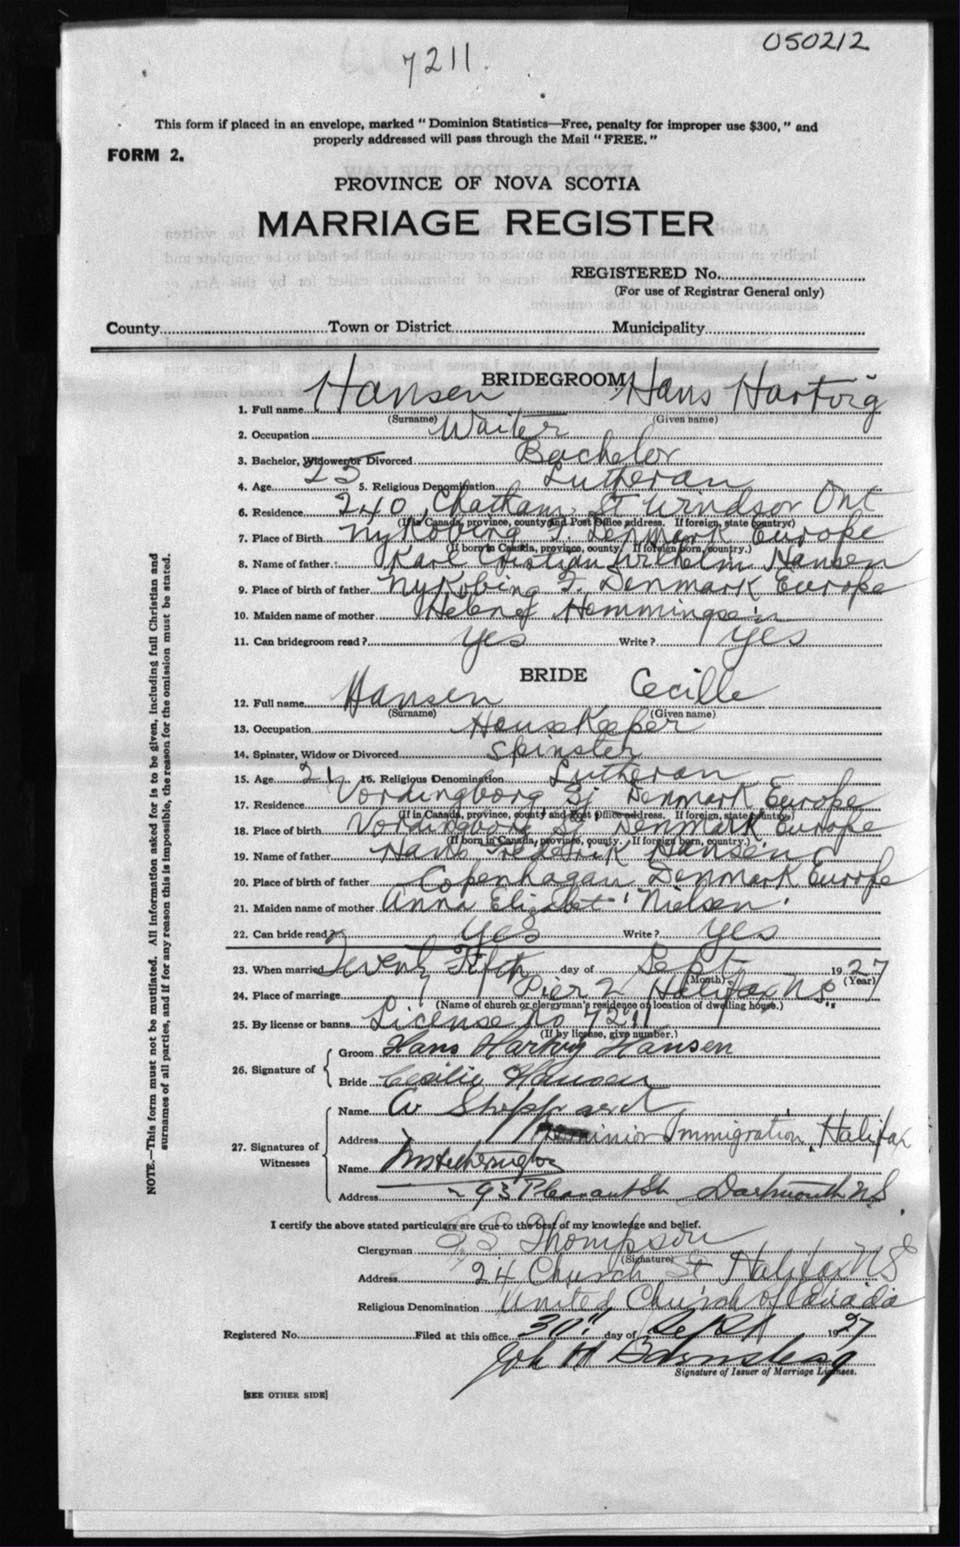 7211.
050212
This form if placed in an envelope, marked "Dominion Statistics—Free, penalty for improper use $300," and
properly addressed will pass through the Mail "FREE."
FORM 2.
PROVINCE OF NOVA SCOTIA
MARRIAGE REGISTER
REGISTERED No.
(For use of Registrar General only)
County Town or District Municipality
BRIDEGROOM
1. Full name Hansen Hans Hartvig
(Surname) (Given name)
2. Occupation Waiter
3. Bachelor, Widower or Divorced Bachelor
4. Age 25 5. Religious Denomination Lutheran
6. Residence 240, Chatham St Windsor Ont
(If in Canada, province, county and Post Office address. If foreign, state country)
7. Place of Birth Nykobing F. Denmark Europe
(If born in Canada, province, county. If foreign born, country.)
8. Name of father Karl Wilhelm Hansen
9. Place of birth of father Nykobing F. Denmark Europe
10. Maiden name of mother Hemmingsen
11. Can bridegroom read? yes Write? yes
BRIDE
12. Full name Hansen Cecille
(Surname) (Given name)
13. Occupation HouseKeeper
14. Spinster, Widow or Divorced Spinster
15. Age 16. Religious Denomination Lutheran
17. Residence Vordingborg Sj Denmark Europe
(If in Canada, province, county and Post Office address. If foreign, state country)
18. Place of birth Vordingborg Sj Denmark Europe
(If born in Canada, province, county. If foreign born, country.)
19. Name of father Hans Frederik Hansen
20. Place of birth of father Copenhagan Denmark Europe
21. Maiden name of mother Anna Elizabet Nielsen
22. Can bride read? yes Write? yes
23. When married Twenty Fifth day of Sept 1927
(Month) (Year)
24. Place of marriage Pier 2 Halifax N.S.
(Name of church or clergyman's residence or location of dwelling house.)
25. By license or banns License No 7211
(If by license, give number.)
26. Signature of
Groom Hans Hartvig Hansen
Bride Cecilie Hansen
27. Signatures of Witnesses
Name Sheppard
Address Immigration, Halifax
Name
Address 93 Pleasant St. Dartmouth N.S.
I certify the above stated particulars are true to the best of my knowledge and belief.
Clergyman Thompson
(Signature)
Address 24 Church St Halifax NS
Religious Denomination United Church of Canada
Registered No. Filed at this office 30th day of Sept 1927
Signature of Issuer of Marriage Licenses.
[SEE OTHER SIDE]
NOTE.—This form must not be mutilated. All information asked for is to be given, including full Christian and
surnames of all parties, and if for any reason this is impossible, the reason for the omission must be stated.